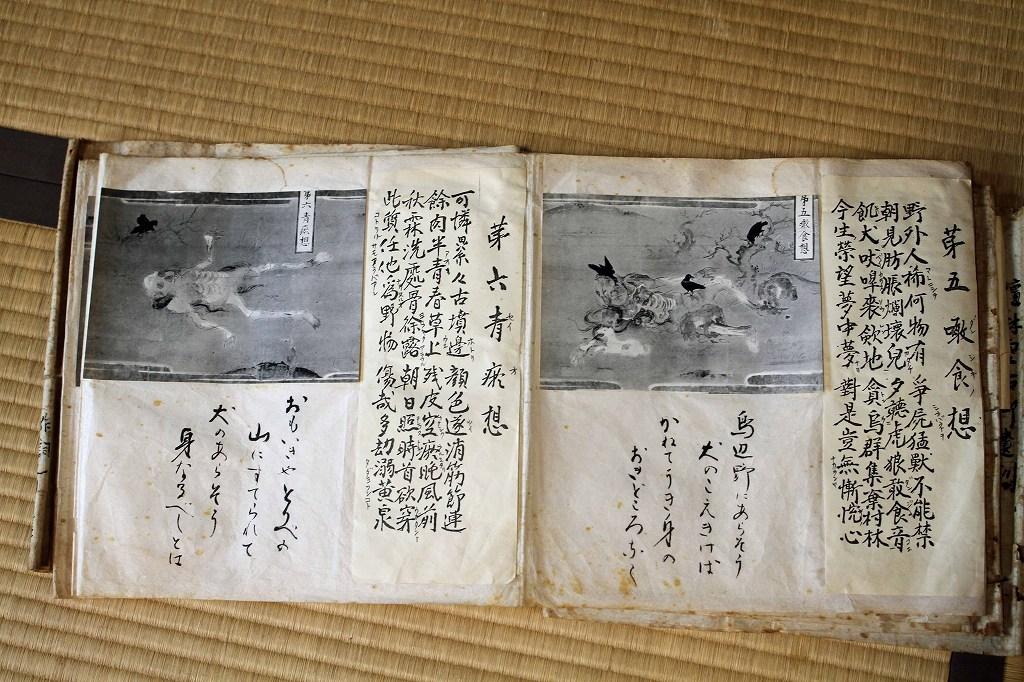 苐五噉食想
野外人稀何物有 爭屍猛獸不能禁
朝見肪脹爛壞兒 夕聽虎狼噉食音
飢犬吠嘷喪歛地 貪烏群集棄村林
今生榮望夢中夢 對是豈無慚愧心
第五噉食想
鳥辺野にあらそう
犬のこえきけば
かねてうき身の
おきどころなく
苐六青瘀想
可憐累々古墳邊 顔色遂消筋節連
餘肉半青春草上 残皮空瘀晩風前
秋霖洗處骨徐露 朝日照時首欲穿
此頭任他爲野物 傷哉多劫溺黄泉
第六青瘀想
おもいきやとりべの
山にすてられて
犬のあらそう
身なるべしとは